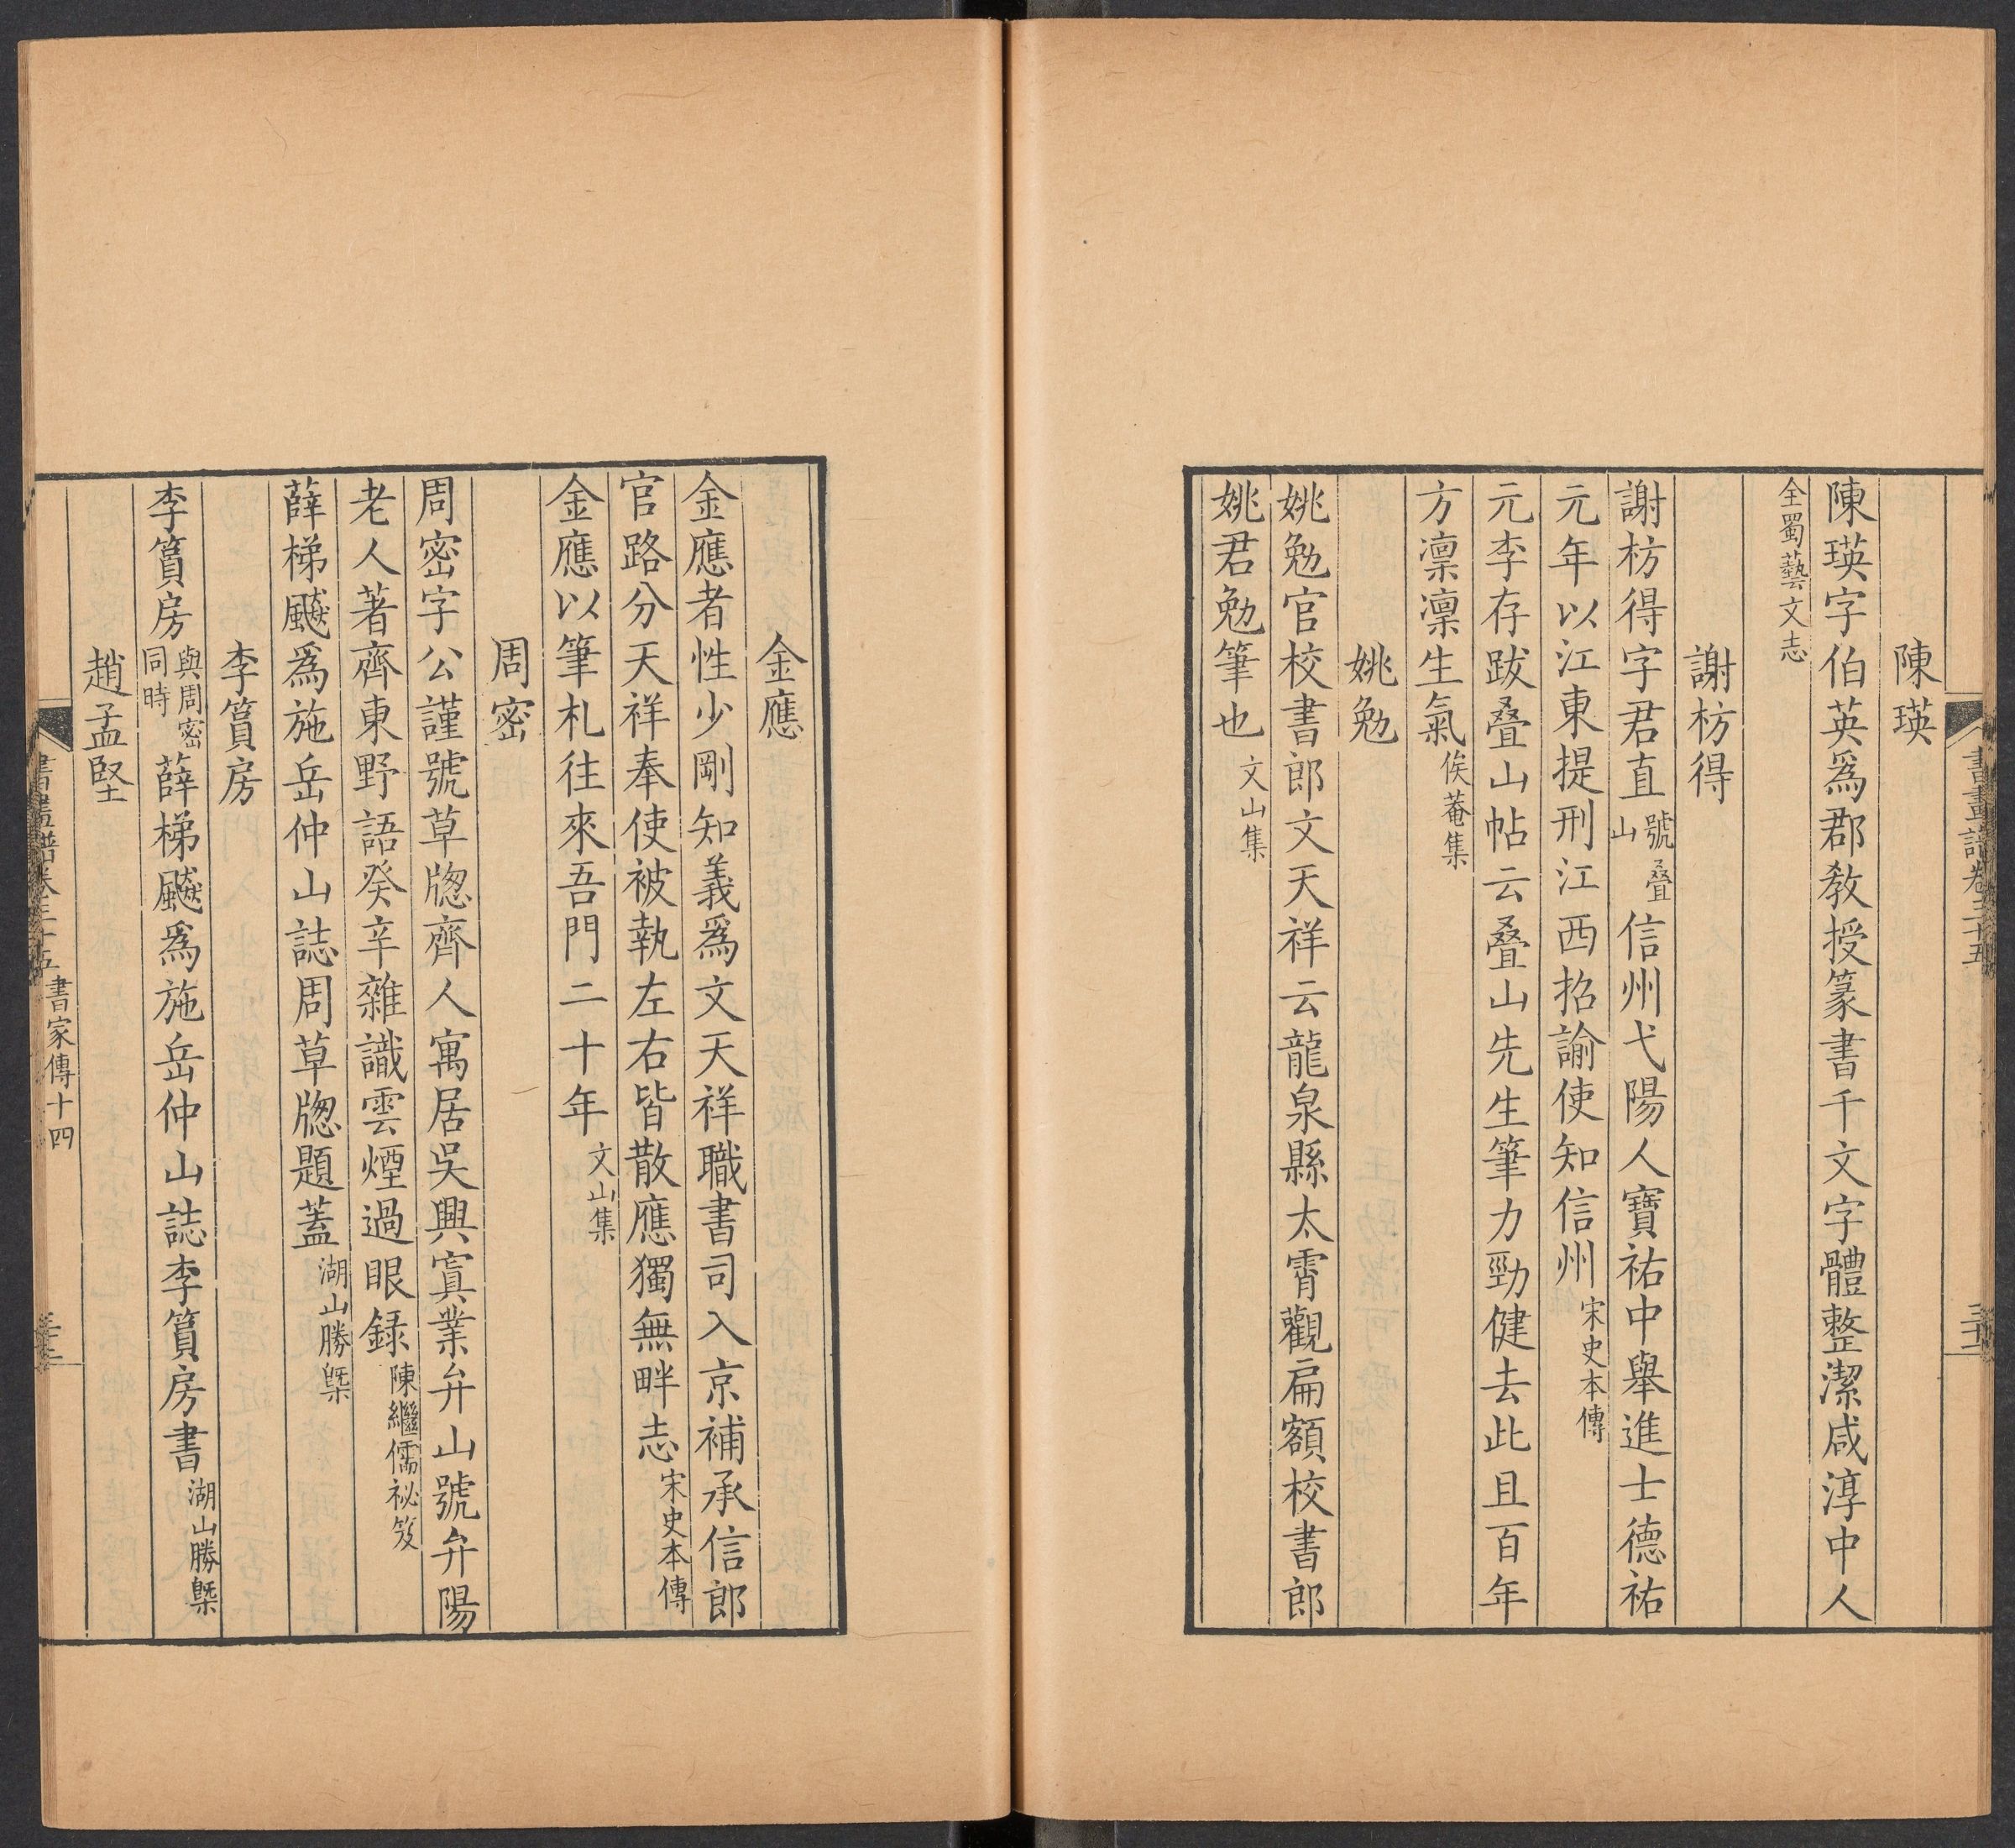 書畫譜卷三十五
陳瑛
陳瑛字伯英爲郡教授篆書千文字體整潔咸淳中人
全蜀藝文志
謝枋得
謝枋得字君直號疊山信州弋陽人寶祐中舉進士德祐
元年以江東提刑江西招諭使知信州宋史本傳
元李存跋疊山帖云疊山先生筆力勁健去此且百年
方凛凛生氣俟菴集
姚勉
姚勉官校書郎文天祥云龍泉縣太霄觀扁額校書郎
姚君勉筆也文山集
金應
金應者性少剛知義爲文天祥職書司入京補承信郎
官路分天祥奉使被執左右皆散應獨無畔志宋史本傳
金應以筆札往來吾門二十年文山集
周密
周密字公謹號草牕齊人寓居吳興寘業弁山號弁陽
老人著齊東野語癸辛雜識雲煙過眼録陳繼儒祕笈
薛梯飇爲施岳仲山誌周草牕題蓋湖山勝槩
李篔房
李篔房與周密同時薛梯飇爲施岳仲山誌李篔房書湖山勝槩
趙孟堅
書畫譜卷三十五 書家傳十四